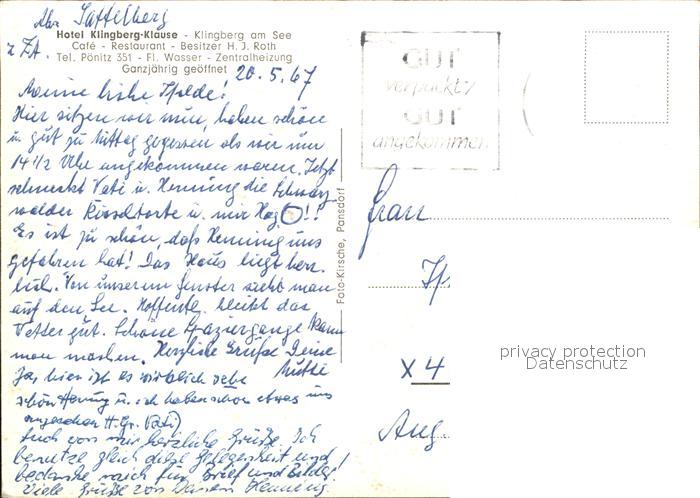 Abs. Sattelberg
z. Zt.
Hotel Klingberg-Klause - Klingberg am See
Café - Restaurant - Besitzer H. J. Roth
Tel. Pönitz 351 - Fl. Wasser - Zentralheizung
Ganzjährig geöffnet
20.5.67
Meine liebe Ilselde!
Hier sitzen wir nun, haben schön
u. gut zu Mittag gegessen als wir um
14 1/2 Uhr angekommen waren. Jetzt
schmeckt Vati u. Henning die Schwarz-
wälder Kirschtorte u. mir
Es ist zu schön, daß Henning uns
gefahren hat! Das Haus liegt herr-
lich. Von unserem Fenster sieht man
auf den See. Hoffentl. bleibt das
Wetter gut. Schöne Spaziergänge kann
man machen. Herzliche Grüße Deine
Mutti
Ja, hier ist es wirklich sehr
schön Henning u. ich haben schon etwas uns
angesehen H. Gr. Vati)
Auch von mir herzliche Grüße. Ich
benutze gleich diese Gelegenheit und
bedanke mich für Brief und Bilder!
Viele Grüße von Deinem Henning.
Foto-Kirsche, Pansdorf
GUT
verpackt
GUT
angekommen
Frau
X 4
Aug
privacy protection
Datenschutz